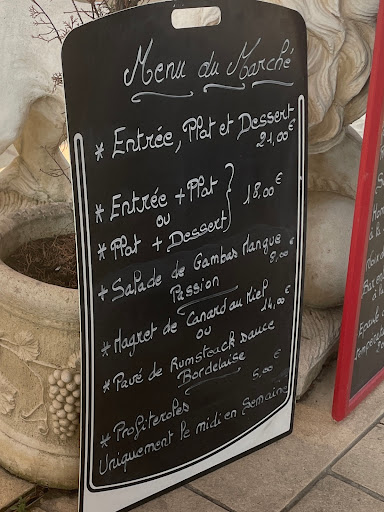 Menu du Marché
* Entrée, Plat et Dessert
21,00€
* Entrée + Plat
ou
* Plat + Dessert
18,00€
* Salade de Gambas Mangue
Passion
9,00€
* Magret de Canard au Miel
ou
14,00€
* Pavé de Rumsteack sauce
Bordelaise
* Profiteroles
5,00€
Uniquement le midi en Semaine